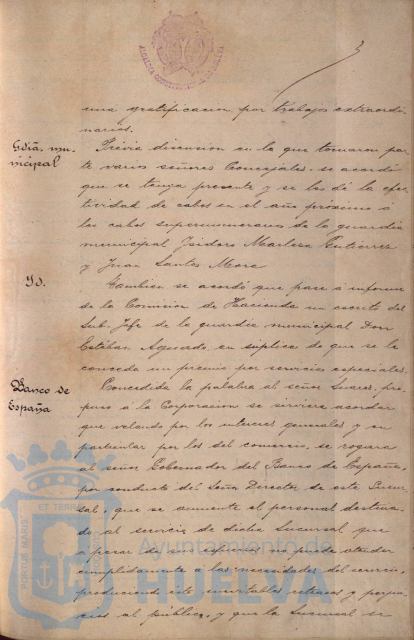 una gratificacion por trabajos extraordi-
narios.
Gdiã. mu-
nicipal
Previa discusion en la que tomaron par-
te varios señores Concejales, se acordó
que se tenga presente y se les dé la efec-
tividad de cabos en el año próximo á
los cabos supernumerarios de la guardia
municipal Isidoro Gutierrez
y Juan Santos Mora
Id.
Tambien se acordó que pase á informe
de la Comision de Hacienda un escrito del
Sub. Jefe de la guardia municipal Don
Estéban Aguado, en súplica de que se le
conceda un premio por servicios especiales.
Banco de
España
Concedida la palabra al señor Suarez, pro-
puso á la Corporacion se sirviere acordar
que velando por los intereses generales y en
particular por los del comercio, se rogara
al señor Gobernador del Banco de España,
por conducto del Señor Director de esta Sucur-
sal, que se aumente el personal destina-
do al servicio de dicha Sucursal que
a pesar de sus esfuerzos no puede atender
cumplidamente a las necesidades del servicio,
produciendo este inevitables retrasos y perjui-
cios al público, y que la Sucursal se
PORTUS MARIS ET TERRAE
Ayuntamiento de
HUELVA